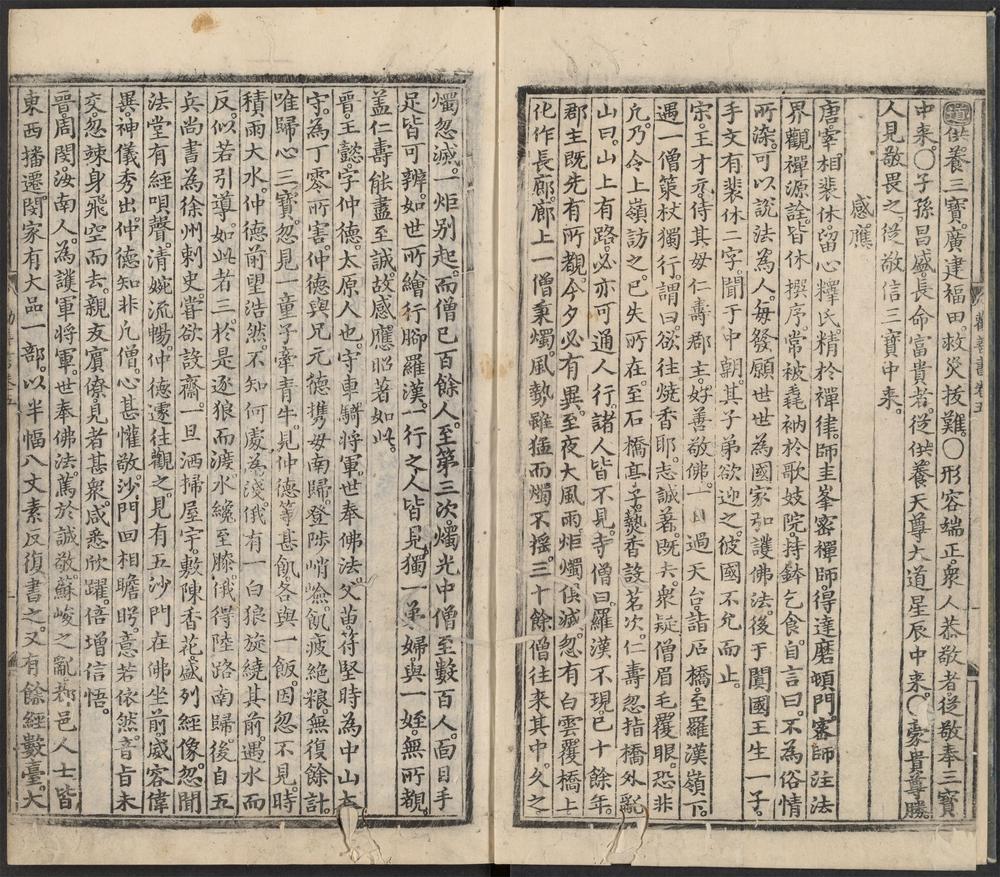 道供養三寶廣建福田救災拔難〇形容端正衆人恭敬者從敬奉三寶
中來〇子孫昌盛長命富貴者從供養天尊大道星辰中來〇豪貴尊勝
人見敬畏之從敬信三寶中來
感應
唐宰相裴休留心釋氏精於禪律師圭峯密禪師得達磨頓門密師注法
界觀禪源詮皆休撰序常被毳衲於歌妓院持鉢乞食自言曰不為俗情
所染可以說法為人每發願世世為國家弘護佛法後于闐國王生一子
手文有裴休二字聞于中朝其子弟欲迎之彼國不允而止
宋王才元侍其母仁壽郡主好善敬佛一日過天台詣石橋至羅漢嶺下
遇一僧策杖獨行謂曰欲往燒香耶志誠著既去衆疑僧眉毛覆眼恐非
凡乃令上嶺訪之已失所在至石橋亭子爇香設茗次仁壽忽指橋外亂
山曰山上有路必亦可通人行諸人皆不見寺僧曰羅漢不現已十餘年
郡主既先有所覩今夕必有異至夜大風雨炬燭俱滅忽有白雲覆橋上
化作長廊廊上一僧秉燭風勢雖猛而燭不搖三十餘僧往來其中久之
燭忽滅一炬别起而僧已百餘人至第三次燭光中僧至數百人面目手
足皆可辨如世所繪行脚羅漢一行之人皆見獨一弟婦與一姪無所覩
盖仁壽能盡至誠故感應昭著如此
晉王懿字仲德太原人也守車騎將軍世奉佛法父苗苻堅時為中山太
守為丁零所害仲德與兄元德携母南歸登陟峭嶮飢疲絶粮無復餘計
唯歸心三寶忽見一童子牽青牛見仲德等甚飢各與一飯因忽不見時
積雨大水仲德前望浩然不知何處為淺俄有一白狼旋繞其前過水而
反似若引導如此者三於是逐狼而渡水纔至膝俄得陸路南歸後自五
兵尚書為徐州刺史嘗欲設齋一旦洒掃屋宇敷陳香花盛列經像忽聞
法堂有經唄聲清婉流暢仲德遽往觀之見有五沙門在佛坐前威容偉
異神儀秀出仲德知非凡僧心甚懽敬沙門回相瞻眄意若依然音旨未
交忽竦身飛空而去親友賓僚見者甚衆咸悉欣躍倍增信悟
晉周閔汝南人為護軍將軍世奉佛法篤於誠敬蘇峻之亂都邑人士皆
東西播遷閔家有大品一部以半幅八丈素反復書之又有餘經數臺大